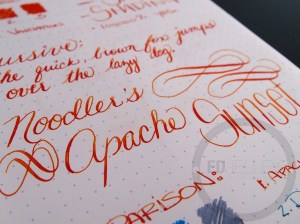 cursive:
the quick, brown fox jumps
over the lazy dog.
Noodler's
Apache Sunset
PARISON:
1. APAC
2. D